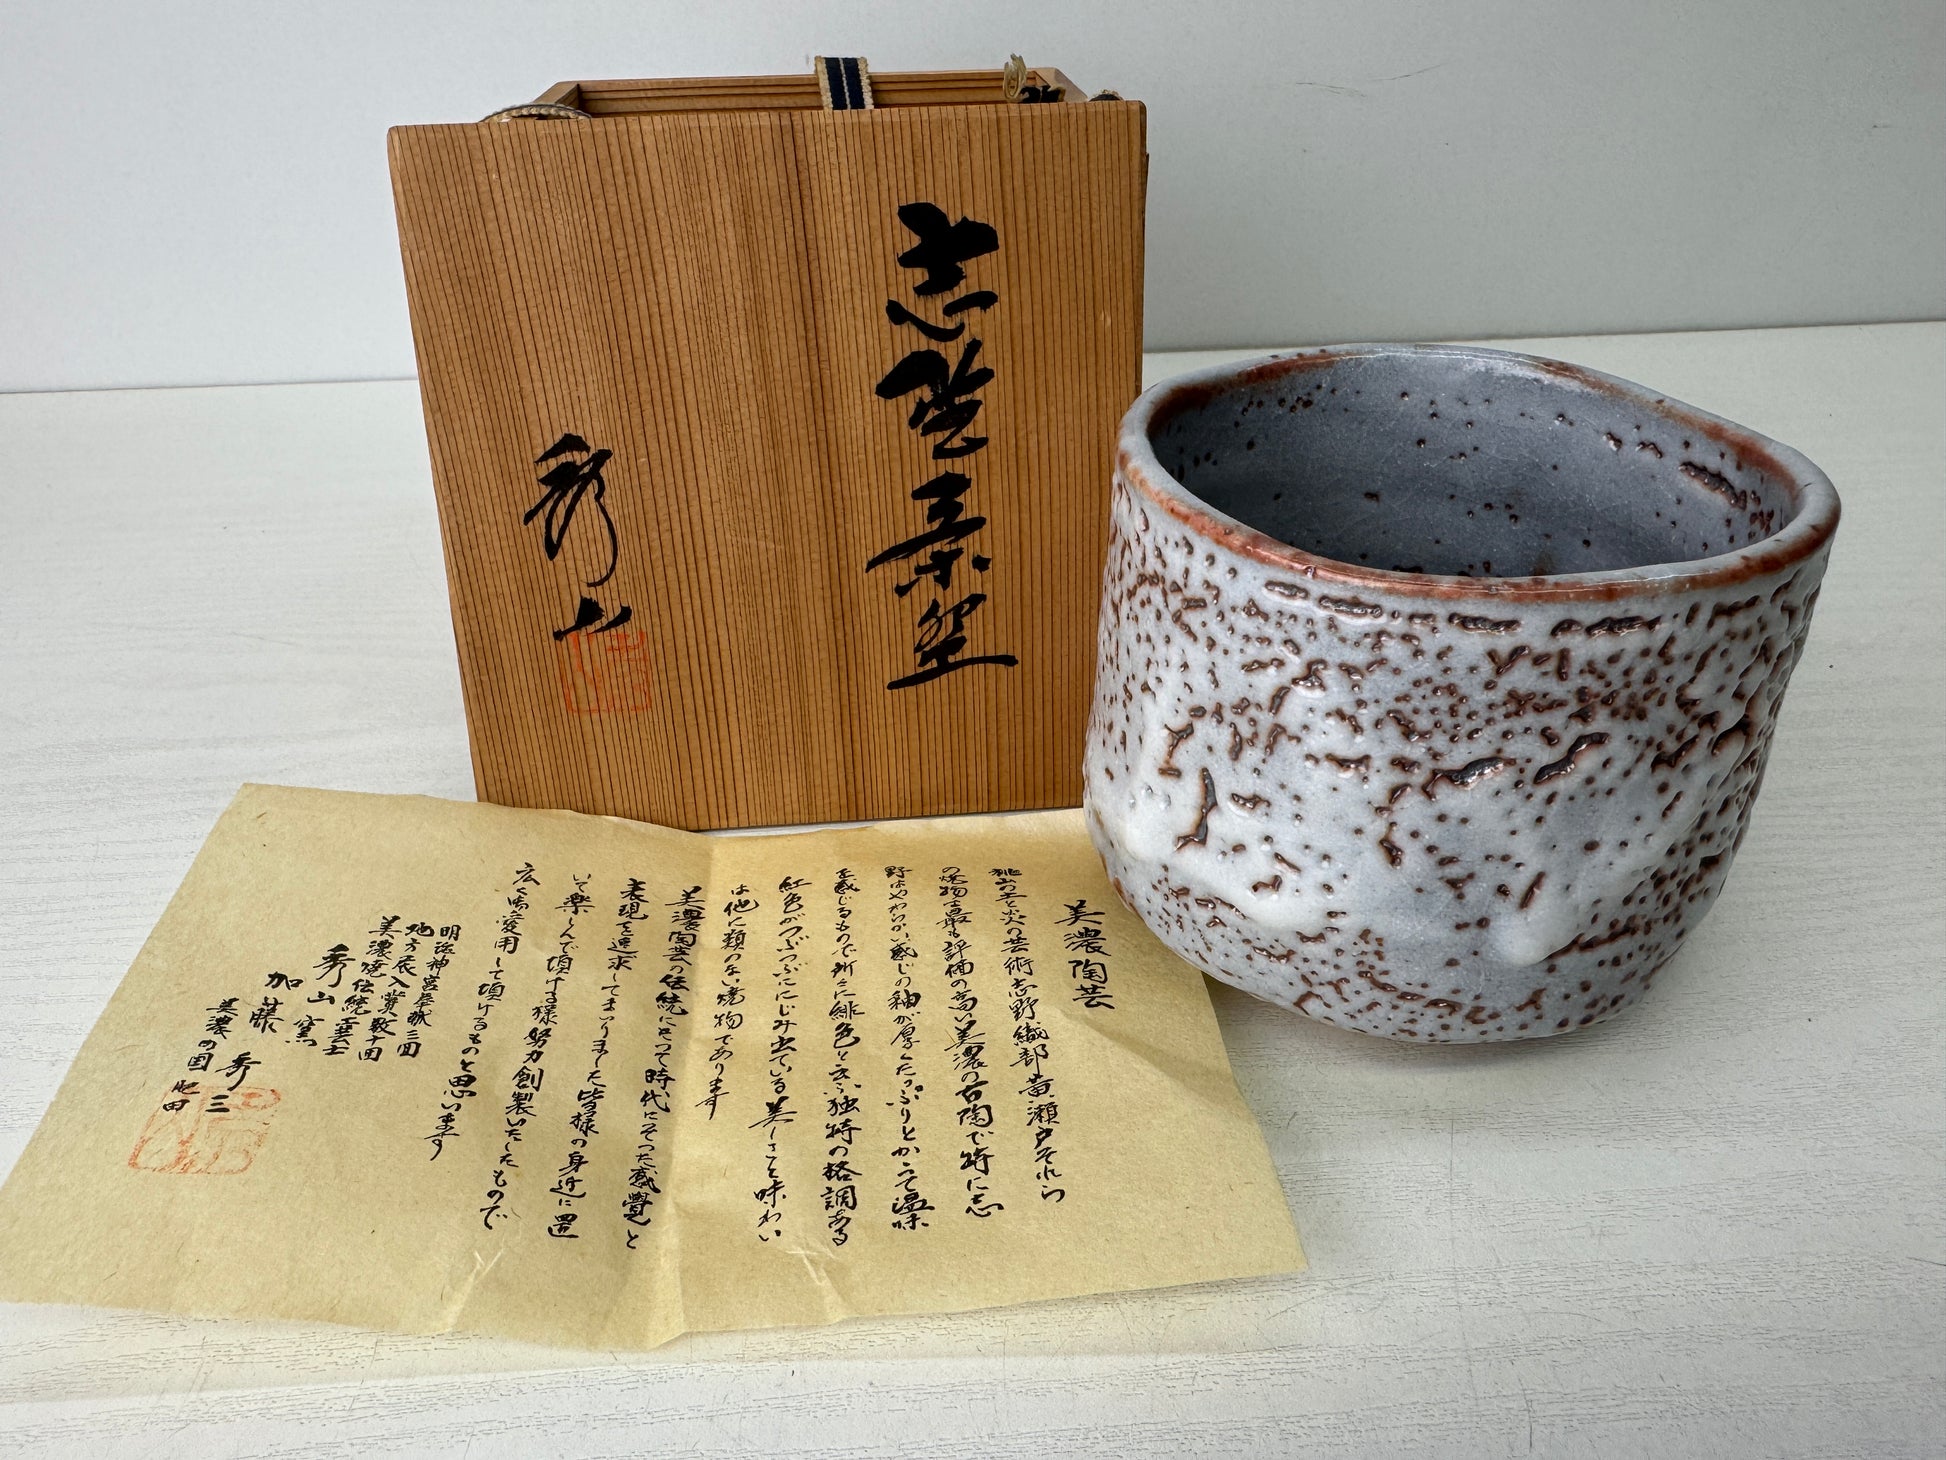 志野茶盌
秀山
美濃陶芸
桃山の土と炎の芸術志野織部黄瀬戸それら
の焼物は最も評価の高い美濃の古陶で特に志
野はやわらかい感じの釉が厚くたっぷりとかって温味
を感じるもので所々に緋色と云ふ独特の格調ある
紅色がつぶつぶににじみ出ている美しさと味わい
は他に類のない焼物であります
美濃陶芸の伝統にそって時代にそった感覚と
表現を追求してまいりました皆様の身近に置
いて楽しんで頂ける様努力創製いたしたもので
広く御愛用して頂けるものと思います
明治神宮奉献三回
地方展入賞数十回
美濃焼伝統工芸士
秀山窯
加藤秀三
美濃の国肥田